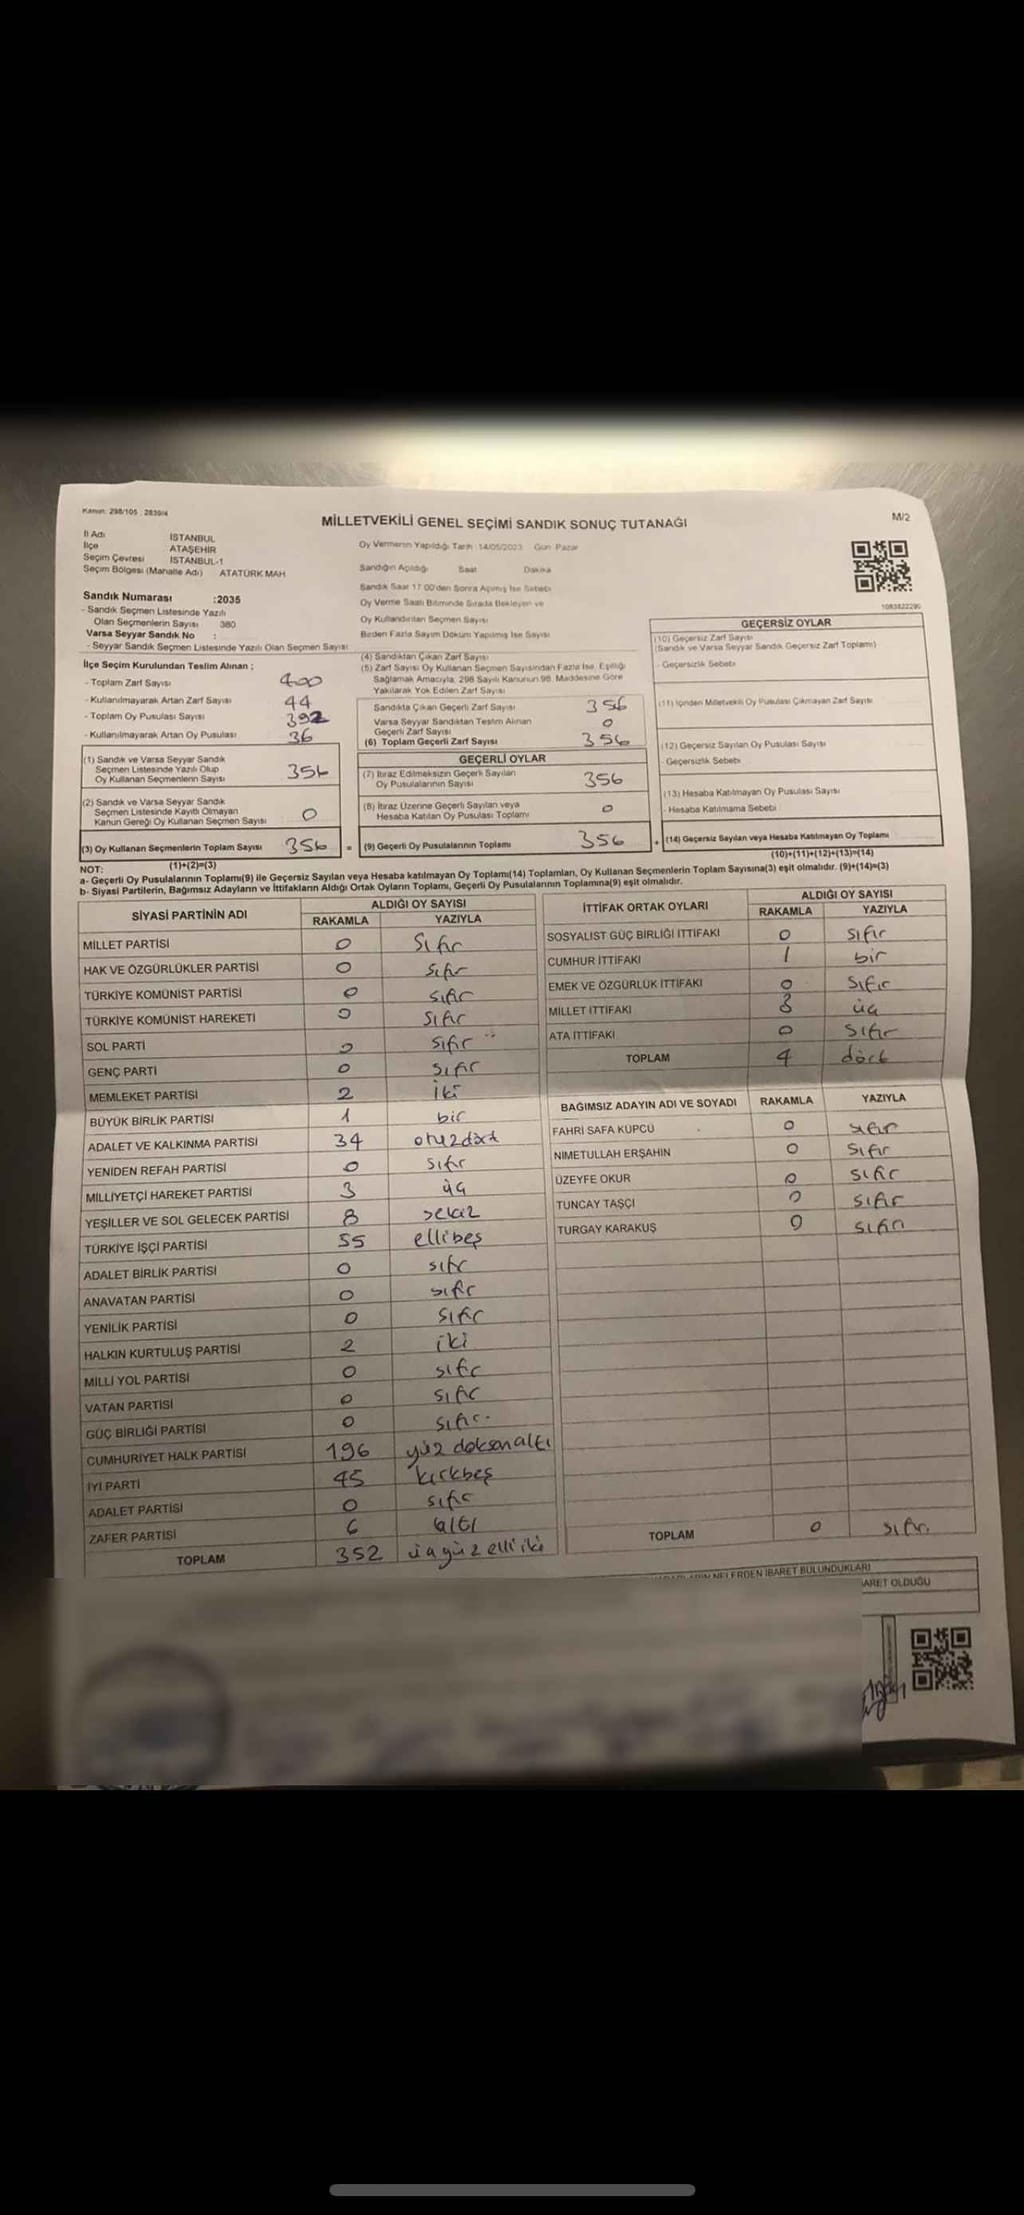 Kanun: 298/105 2839/4
MİLLETVEKİLİ GENEL SEÇİMİ SANDIK SONUÇ TUTANAĞI
M/2
İl Adı İSTANBUL
İlçe ATAŞEHİR
Seçim Çevresi İSTANBUL-1
Seçim Bölgesi (Mahalle Adı) ATATÜRK MAH
Oy Vermenin Yapıldığı Tarih :14/05/2023 Gün Pazar
Sandığın Açıldığı Saat Dakika
Sandık Saat 17.00'den Sonra Açılmış İse Sebebi
Oy Verme Saati Bitiminde Sırada Bekleyen ve
Oy Kullandırılan Seçmen Sayısı
Birden Fazla Sayım Döküm Yapılmış İse Sayısı
Sandık Numarası :2035
- Sandık Seçmen Listesinde Yazılı
Olan Seçmenlerin Sayısı 380
Varsa Seyyar Sandık No :
- Seyyar Sandık Seçmen Listesinde Yazılı Olan Seçmen Sayısı
İlçe Seçim Kurulundan Teslim Alınan ;
- Toplam Zarf Sayısı 400
- Kullanılmayarak Artan Zarf Sayısı 44
- Toplam Oy Pusulası Sayısı 392
- Kullanılmayarak Artan Oy Pusulası 36
(1) Sandık ve Varsa Seyyar Sandık
Seçmen Listesinde Yazılı Olup
Oy Kullanan Seçmenlerin Sayısı 356
(2) Sandık ve Varsa Seyyar Sandık
Seçmen Listesinde Kayıtlı Olmayan
Kanun Gereği Oy Kullanan Seçmen Sayısı 0
(3) Oy Kullanan Seçmenlerin Toplam Sayısı 356 =
(1)+(2)=(3)
(4) Sandıktan Çıkan Zarf Sayısı
(5) Zarf Sayısı Oy Kullanan Seçmen Sayısından Fazla İse, Eşitliği
Sağlamak Amacıyla, 298 Sayılı Kanunun 98. Maddesine Göre
Yakılarak Yok Edilen Zarf Sayısı
Sandıkta Çıkan Geçerli Zarf Sayısı 356
Varsa Seyyar Sandıktan Teslim Alınan
Geçerli Zarf Sayısı 0
(6) Toplam Geçerli Zarf Sayısı 356
GEÇERLİ OYLAR
(7) İtiraz Edilmeksizin Geçerli Sayılan
Oy Pusulalarının Sayısı 356
(8) İtiraz Üzerine Geçerli Sayılan veya
Hesaba Katılan Oy Pusulası Toplamı 0
(9) Geçerli Oy Pusulalarının Toplamı 356 +
1083822290
GEÇERSİZ OYLAR
(10) Geçersiz Zarf Sayısı
(Sandık ve Varsa Seyyar Sandık Geçersiz Zarf Toplamı)
- Geçersizlik Sebebi
(11) İçinden Milletvekili Oy Pusulası Çıkmayan Zarf Sayısı
(12) Geçersiz Sayılan Oy Pusulası Sayısı
- Geçersizlik Sebebi
(13) Hesaba Katılmayan Oy Pusulası Sayısı
- Hesaba Katılmama Sebebi
(14) Geçersiz Sayılan veya Hesaba Katılmayan Oy Toplamı
(10)+(11)+(12)+(13)=(14)
NOT:
a- Geçerli Oy Pusulalarının Toplamı(9) ile Geçersiz Sayılan veya Hesaba katılmayan Oy Toplamı(14) Toplamları, Oy Kullanan Seçmenlerin Toplam Sayısına(3) eşit olmalıdır. (9)+(14)=(3)
b- Siyasi Partilerin, Bağımsız Adayların ve İttifakların Aldığı Ortak Oyların Toplamı, Geçerli Oy Pusulalarının Toplamına(9) eşit olmalıdır.
SİYASİ PARTİNİN ADI ALDIĞI OY SAYISI
RAKAMLA YAZIYLA
MİLLET PARTİSİ 0 Sıfır
HAK VE ÖZGÜRLÜKLER PARTİSİ 0 sıfır
TÜRKİYE KOMÜNİST PARTİSİ 0 sıfır
TÜRKİYE KOMÜNİST HAREKETİ 0 sıfır
SOL PARTİ 0 sıfır
GENÇ PARTİ 0 sıfır
MEMLEKET PARTİSİ 2 iki
BÜYÜK BİRLİK PARTİSİ 1 bir
ADALET VE KALKINMA PARTİSİ 34 otuzdört
YENİDEN REFAH PARTİSİ 0 sıfır
MİLLİYETÇİ HAREKET PARTİSİ 3 üç
YEŞİLLER VE SOL GELECEK PARTİSİ 8 sekiz
TÜRKİYE İŞÇİ PARTİSİ 55 ellibeş
ADALET BİRLİK PARTİSİ 0 sıfır
ANAVATAN PARTİSİ 0 sıfır
YENİLİK PARTİSİ 0 sıfır
HALKIN KURTULUŞ PARTİSİ 2 iki
MİLLİ YOL PARTİSİ 0 sıfır
VATAN PARTİSİ 0 sıfır
GÜÇ BİRLİĞİ PARTİSİ 0 sıfır
CUMHURİYET HALK PARTİSİ 196 yüz doksanaltı
İYİ PARTİ 45 kırkbeş
ADALET PARTİSİ 0 sıfır
ZAFER PARTİSİ 6 altı
TOPLAM 352 üçyüz elli iki
İTTİFAK ORTAK OYLARI ALDIĞI OY SAYISI
RAKAMLA YAZIYLA
SOSYALİST GÜÇ BİRLİĞİ İTTİFAKI 0 sıfır
CUMHUR İTTİFAKI 1 bir
EMEK VE ÖZGÜRLÜK İTTİFAKI 0 sıfır
MİLLET İTTİFAKI 3 üç
ATA İTTİFAKI 0 sıfır
TOPLAM 4 dört
BAĞIMSIZ ADAYIN ADI VE SOYADI RAKAMLA YAZIYLA
FAHRİ SAFA KÜPCÜ 0 sıfır
NİMETULLAH ERŞAHİN 0 sıfır
ÜZEYFE OKUR 0 sıfır
TUNCAY TAŞÇI 0 sıfır
TURGAY KARAKUŞ 0 sıfır
TOPLAM 0 sıfır
NELERDEN İBARET BULUNDUKLARI
OLDUĞU